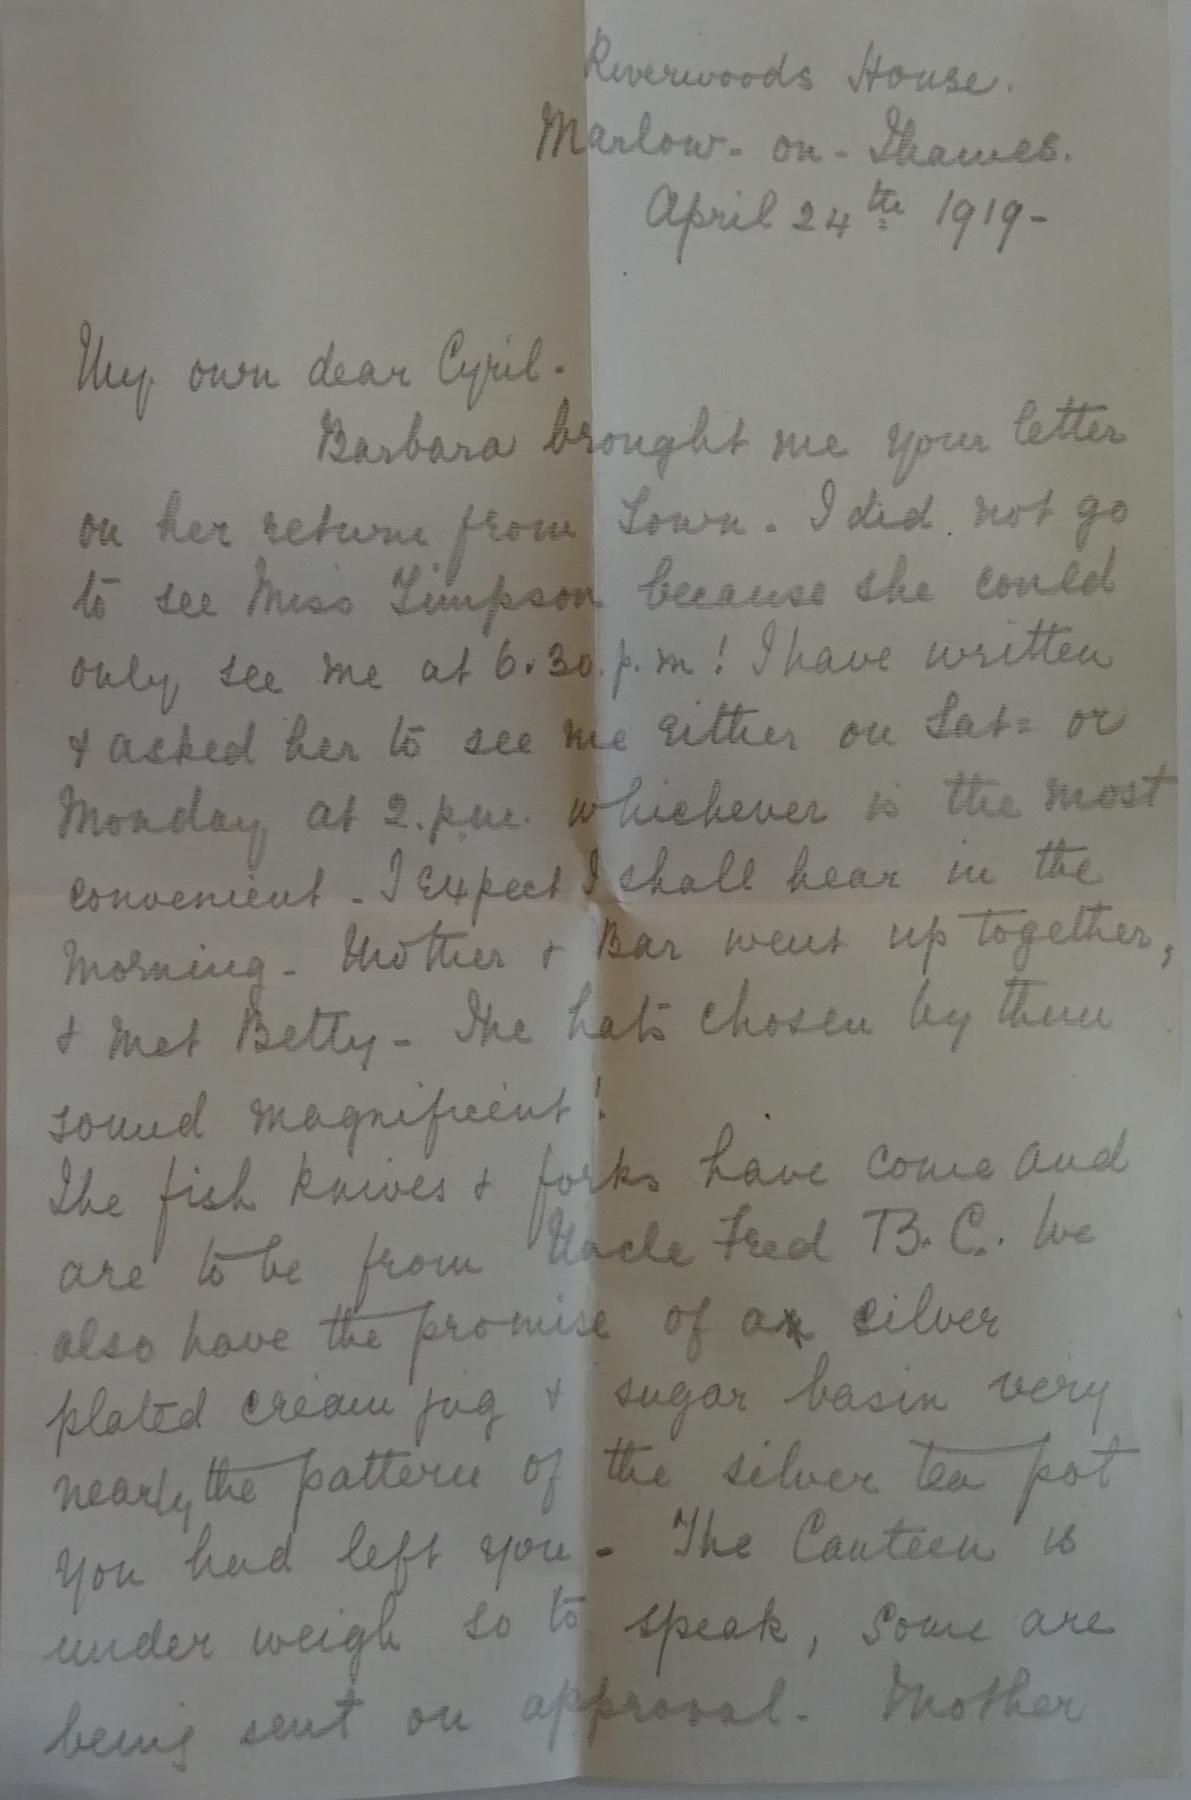 Riverwoods House.
Marlow-on-Thames.
April 24th 1919-
My own dear Cyril-
Barbara brought me your letter
on her return from Town. I did not go
to see Miss Timpson because she could
only see me at 6.30.p.m! I have written
& asked her to see me either on Sat= or
Monday at 2.p.m. whichever is the most
convenient. I expect I shall hear in the
morning. Mother & Bar went up together,
& met Betty- The hats chosen by them
sound magnificent!
The fish knives & forks have come and
are to be from Uncle Fred B.C. We
also have the promise of a silver
plated cream jug & sugar basin very
nearly the pattern of the silver tea pot
you had left you- The Canteen is
under weigh so to speak, some are
being sent on approval. Mother